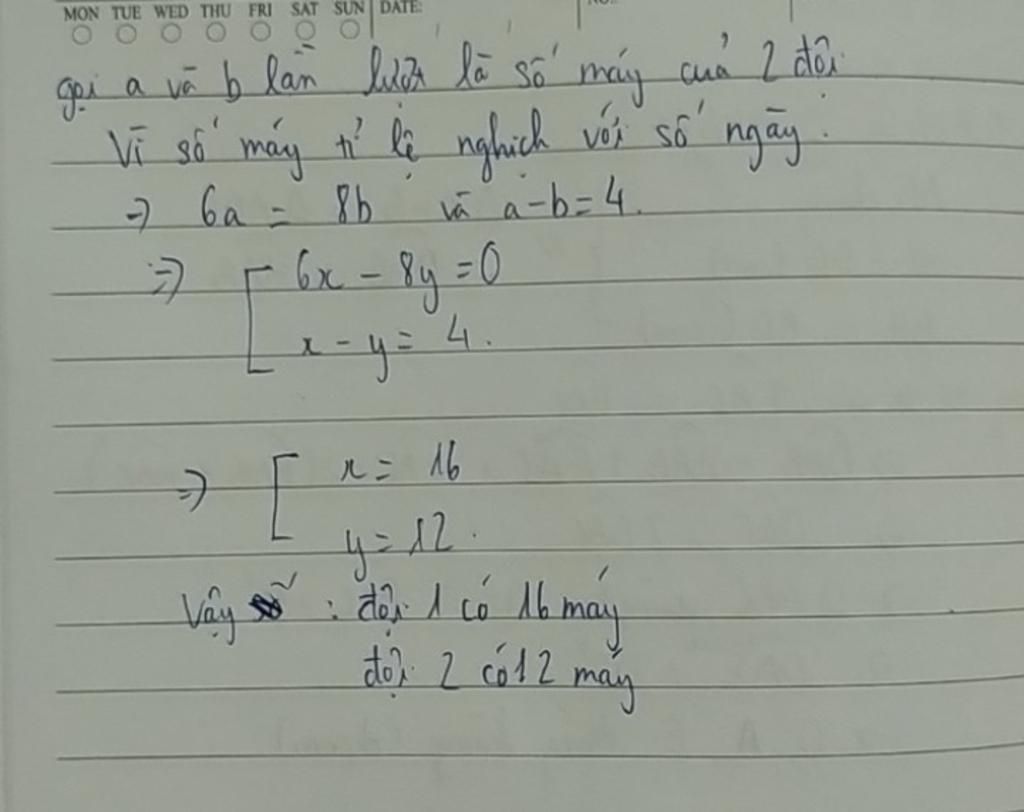 MON TUE WED THU FRI SAT SUN DATE:
gọi a và b lần lượt là số máy của 2 đội
Vì số máy tỉ lệ nghịch với số ngày.
=> 6a = 8b và a-b=4.
=> [ 6x - 8y = 0
x - y = 4.
=> [ x = 16
y = 12.
Vậy : đội 1 có 16 máy
đội 2 có 12 máy